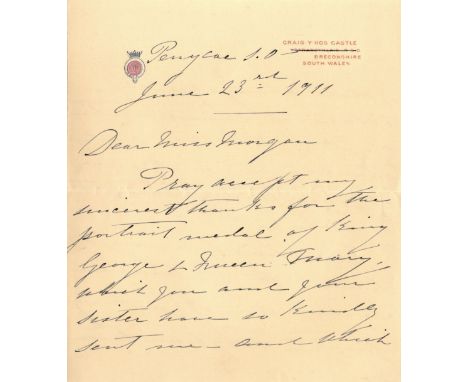 CRAIG-Y-NOS CASTLE
BRECONSHIRE
SOUTH WALES
Penycae S.O
June 23rd 1911
Dear Miss Morgan
Pray accept my
sincerest thanks for the
portrait medal of King
George & Queen Mary,
which you and your
sister have so kindly
sent me – and which